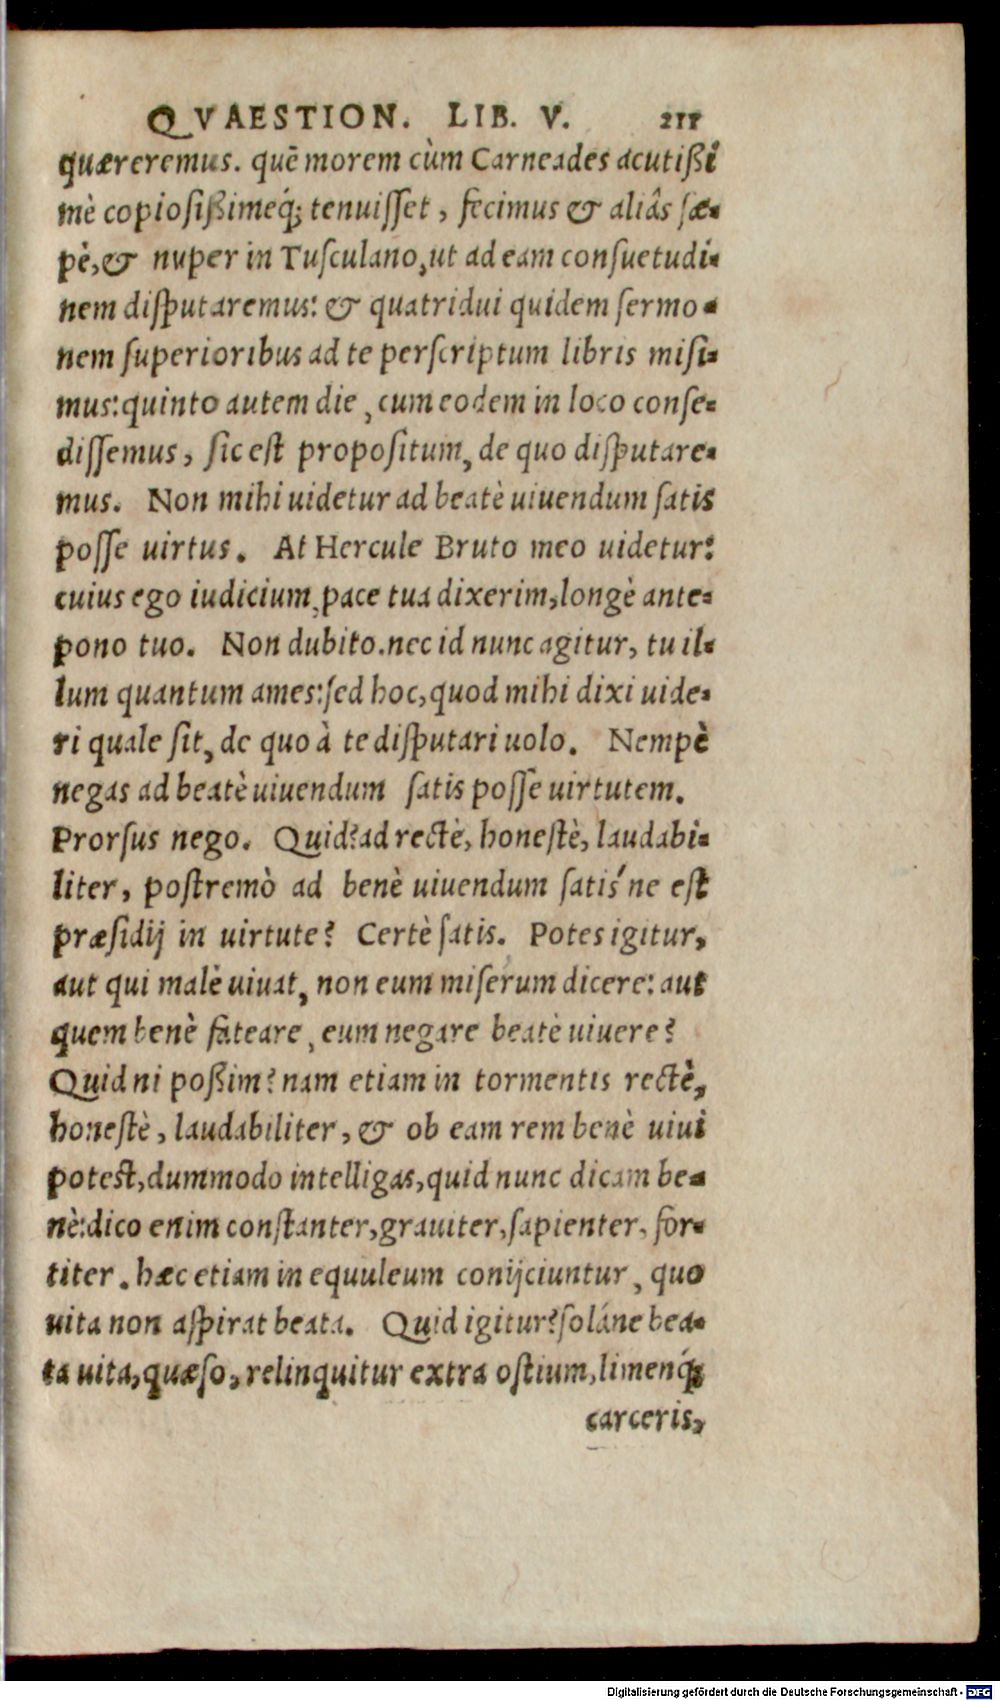 QVAESTION. LIB. V. 211
quæreremus. quē morem cùm Carneades acutißi
mè copiosißimeq́; tenuisset, fecimus & aliâs sæ-
pè, & nuper in Tusculano, ut ad eam consuetudi-
nem disputaremus: & quatridui quidem sermo-
nem superioribus ad te perscriptum libris misi-
mus: quinto autem die, cum eodem in loco conse-
dissemus, sic est propositum, de quo disputare-
mus. Non mihi uidetur ad beatè uiuendum satis
posse uirtus. At Hercule Bruto meo uidetur:
cuius ego iudicium, pace tua dixerim, longè ante-
pono tuo. Non dubito. nec id nunc agitur, tu il-
lum quantum ames: sed hoc, quod mihi dixi uide-
ri quale sit, de quo à te disputari uolo. Nempè
negas ad beatè uiuendum satis posse uirtutem.
Prorsus nego. Quid? ad rectè, honestè, laudabi-
liter, postremò ad benè uiuendum satis'ne est
præsidij in uirtute? Certè satis. Potes igitur,
aut qui malè uiuat, non eum miserum dicere: aut
quem benè fateare, eum negare beatè uiuere?
Quid ni poßim? nam etiam in tormentis rectè,
honestè, laudabiliter, & ob eam rem benè uiui
potest, dummodo intelligas, quid nunc dicam be-
nè: dico enim constanter, grauiter, sapienter, for-
titer. hæc etiam in equuleum conijciuntur, quo
uita non aspirat beata. Quid igitur? soláne bea-
ta uita, quæso, relinquitur extra ostium, limenq́;
carceris,
Digitalisierung gefördert durch die Deutsche Forschungsgemeinschaft - DFG